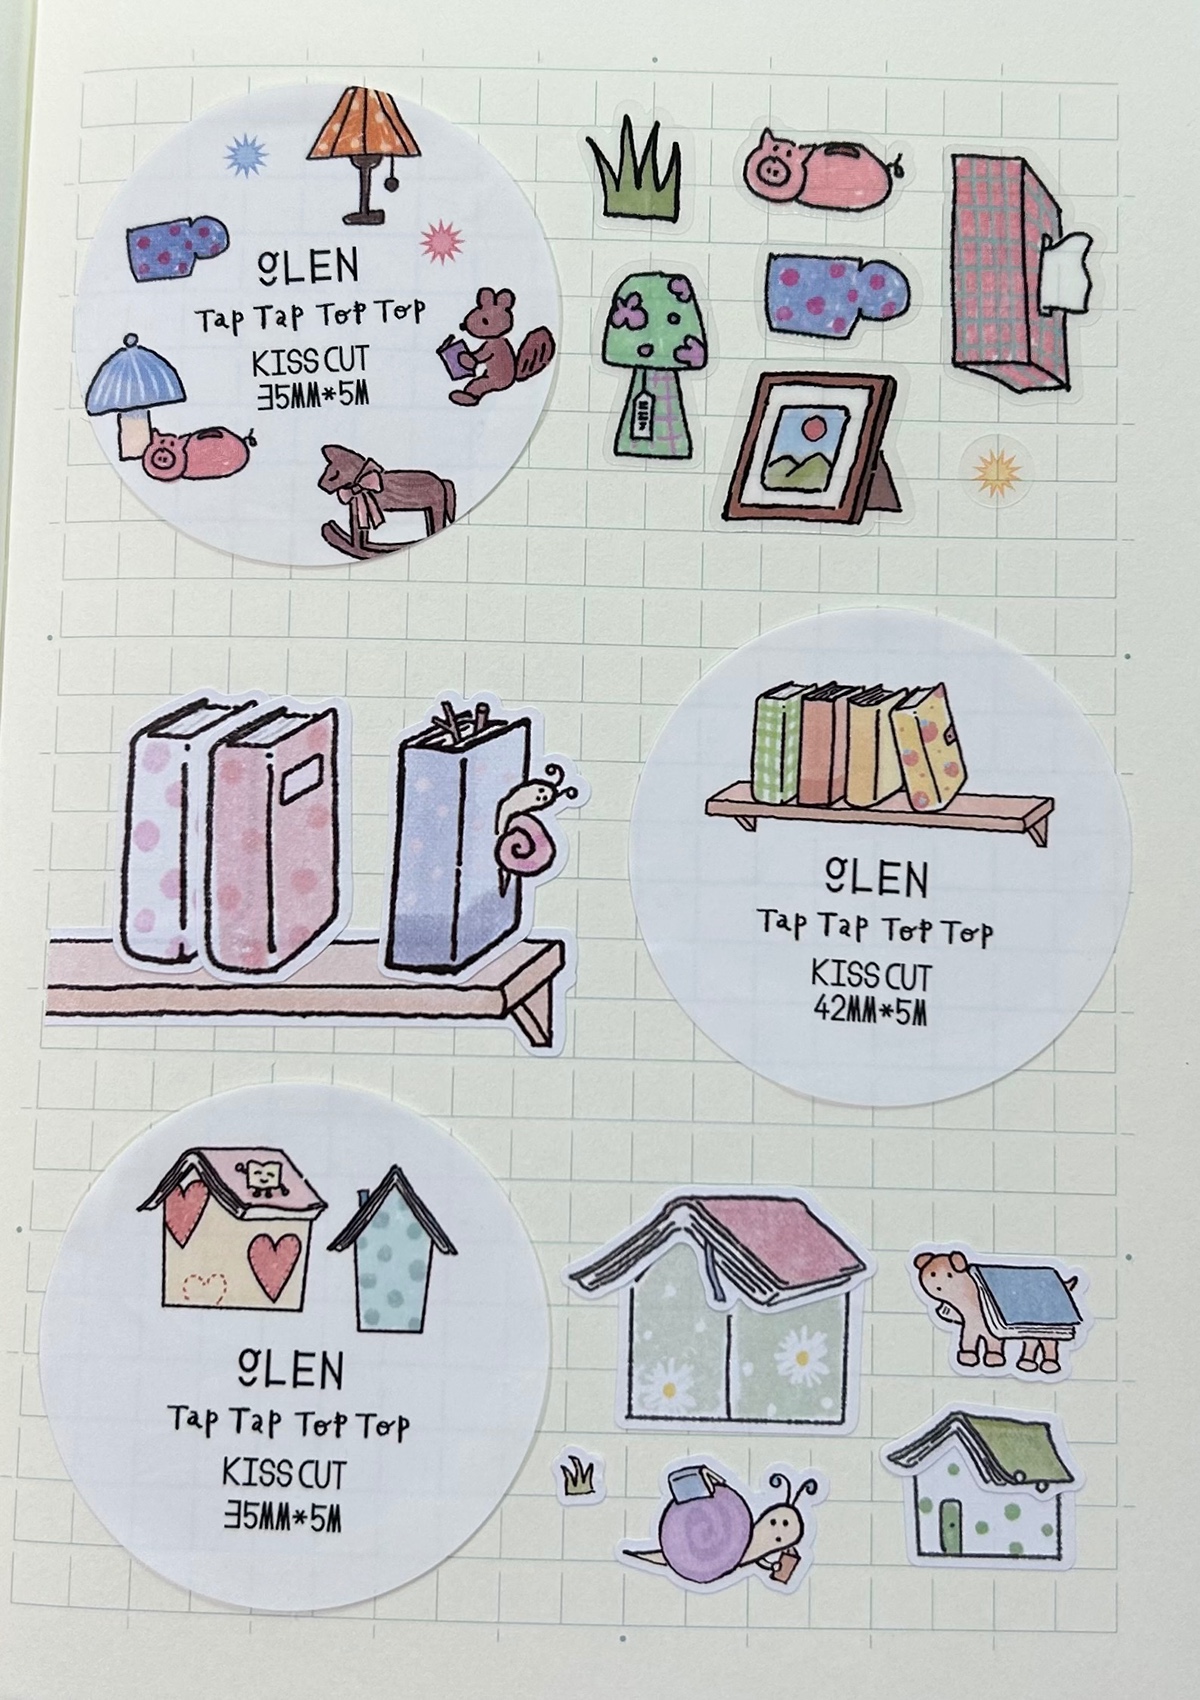 gLEN
Tap Tap Top Top
KISS CUT
35MM*5M
gLEN
Tap Tap Top Top
KISS CUT
42MM*5M
gLEN
Tap Tap Top Top
KISS CUT
35MM*5M